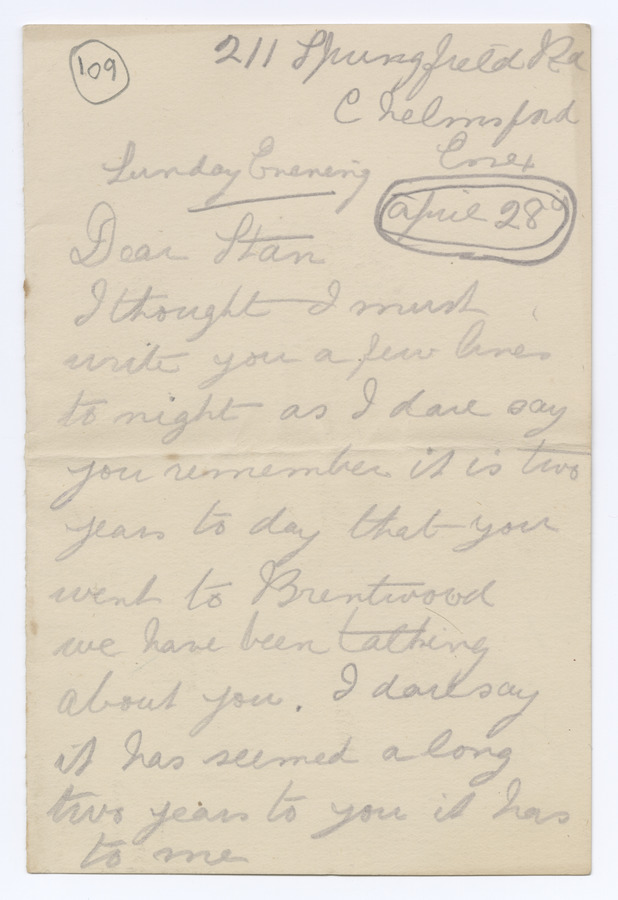 109
211 Springfield Rd
Chelmsford
Essex
Sunday Evening
April 28
Dear Stan
I thought I must
write you a few lines
to night as I dare say
you remember it is two
years to day that you
went to Brentwood
we have been talking
about you. I dare say
it has seemed a long
two years to you it has
to me